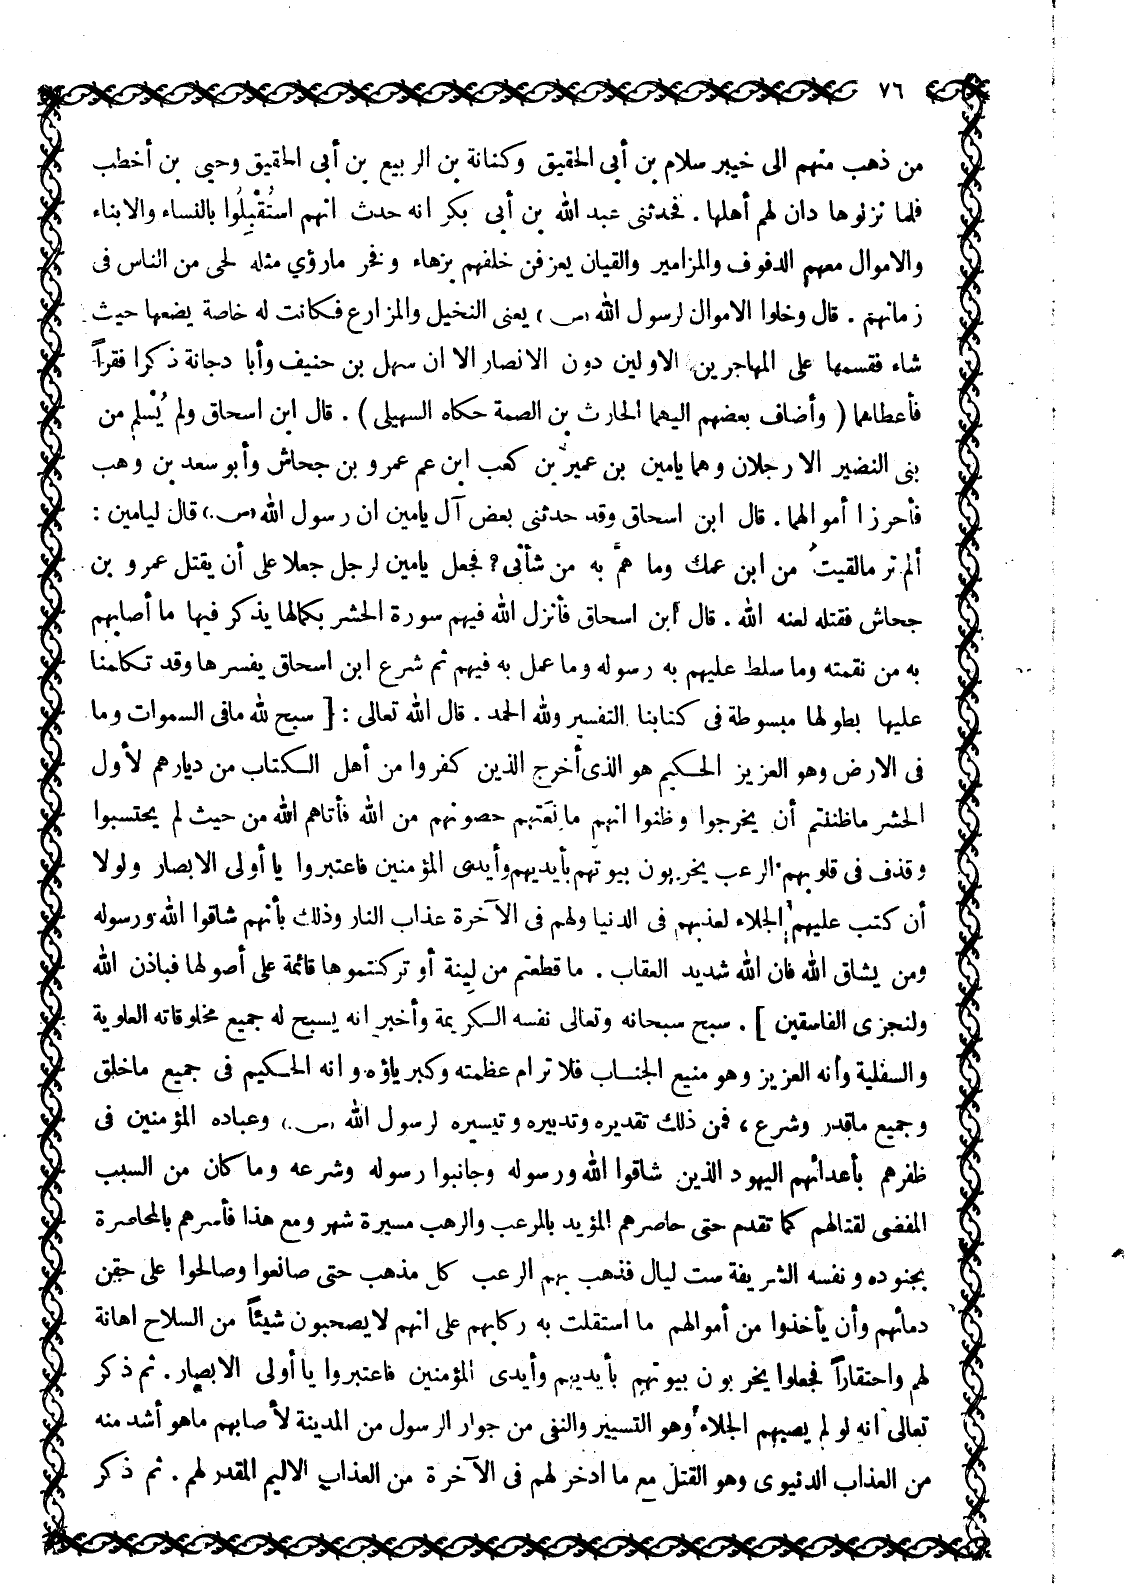 ٧٦
من ذهب منهم الى خيبر سلام بن أبى الحقيق وكنانة بن الربيع بن أبى الحقيق وحيى بن أخطب
فلما نزلوها دان لهم أهلها . فحدثنى عبد الله بن أبى بكر انه حدث انهم استُقْبِلُوا بالنساء والابناء
والاموال معهم الدفوف والمزامير والقيان يعزفن خلفهم بزهاء وفخر مارؤي مثله لحى من الناس فى
زمانهم . قال وخلوا الاموال لرسول الله (س) يعنى النخيل والمزارع فكانت له خاصة يضعها حيث
شاء فقسمها على المهاجرين الاولين دون الانصار الا ان سهل بن حنيف وأبا دجانة ذكرا فقراً
فأعطاهما ( وأضاف بعضهم اليهما الحارث بن الصمة حكاه السهيلى ) . قال ابن اسحاق ولم يُسْلم من
بنى النضير الا رجلان وهما يامين بن عمير بن كعب ابن عم عمرو بن جحاش وأبو سعد بن وهب
فأحرزا أموالهما . قال ابن اسحاق وقد حدثنى بعض آل يامين ان رسول الله (س) قال ليامين :
ألم تر مالقيتُ من ابن عمك وما همَّ به من شأنى ? فجعل يامين لرجل جعلا على أن يقتل عمرو بن
جحاش فقتله لعنه الله . قال ابن اسحاق فأنزل الله فيهم سورة الحشر بكمالها يذكر فيها ما أصابهم
به من نقمته وما سلط عليهم به رسوله وما عمل به فيهم ثم شرع ابن اسحاق يفسرها وقد تكلمنا
عليها بطولها مبسوطة فى كتابنا التفسير ولله الحمد . قال الله تعالى : [ سبح لله مافى السموات وما
فى الارض وهو العزيز الحكيم هو الذى أخرج الذين كفروا من أهل الكتاب من ديارهم لأول
الحشر ماظننتم أن يخرجوا وظنوا انهم مانعتهم حصونهم من الله فأتاهم الله من حيث لم يحتسبوا
وقذف فى قلوبهم الرعب يخربون بيوتهم بأيديهم وأيدى المؤمنين فاعتبروا يا أولى الابصار ولولا
أن كتب عليهم الجلاء لعذبهم فى الدنيا ولهم فى الآخرة عذاب النار وذلك بأنهم شاقوا الله ورسوله
ومن يشاق الله فان الله شديد العقاب . ما قطعتم من لِينة أو تركتموها قائمة على أصولها فباذن الله
ولنجزى الفاسقين ] . سبح سبحانه وتعالى نفسه الكريمة وأخبر انه يسبح له جميع مخلوقاته العلوية
والسفلية وأنه العزيز وهو منيع الجناب فلا ترام عظمته وكبرياؤه وانه الحكيم فى جميع ماخلق
وجميع ماقدر وشرع ، فمن ذلك تقديره وتدبيره وتيسيره لرسول الله (س) وعباده المؤمنين فى
ظفرهم بأعدائهم اليهود الذين شاقوا الله ورسوله وجانبوا رسوله وشرعه وما كان من السبب
المفضى لقتالهم كما تقدم حتى حاصرهم المؤيد بالرعب والرهب مسيرة شهر ومع هذا فأسرهم بالمحاصرة
بجنوده ونفسه الشريفة ست ليال فذهب بهم الرعب كل مذهب حتى صانعوا وصالحوا على حقن
دمائهم وأن يأخذوا من أموالهم ما استقلت به ركابهم على انهم لايصحبون شيئاً من السلاح اهانة
لهم واحتقاراً فجعلوا يخربون بيوتهم بأيديهم وأيدى المؤمنين فاعتبروا يا أولى الابصار . ثم ذكر
تعالى انه لو لم يصبهم الجلاء وهو التسيير والنفى من جوار الرسول من المدينة لأصابهم ماهو أشد منه
من العذاب الدنيوى وهو القتل مع ما ادخر لهم فى الآخرة من العذاب الاليم المقدر لهم . ثم ذكر